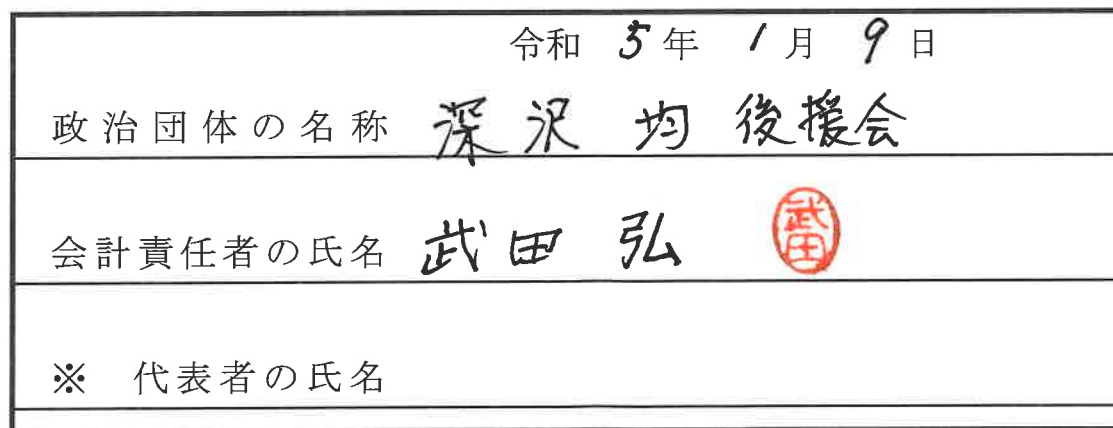 令和 5年 1月 9日
政治団体の名称 深沢 均 後援会
会計責任者の氏名 武田 弘 武田
※ 代表者の氏名